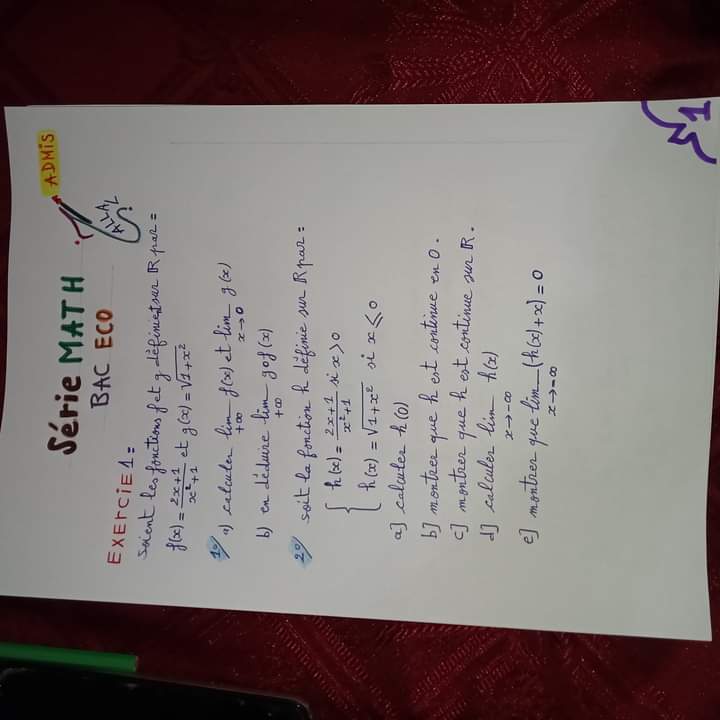 Série MATH
ADMIS
BAC ECO
ALLAL
EXErCiE 1:
soient les fonctions f et g définies sur ℝ par :
f(x) = (2x+1)/(x²+1) et g(x) = √(1+x²)
1°/ a) calculer lim_{+∞} f(x) et lim_{x→0} g(x)
b) en déduire lim_{+∞} gof(x)
2°/ soit la fonction h définie sur ℝ par :
{ h(x) = (2x+1)/(x²+1) si x > 0
h(x) = √(1+x²) si x ⩽ 0
a] calculer h(0)
b] montrer que h est continue en 0.
c] montrer que h est continue sur ℝ.
d] calculer lim_{x→-∞} h(x)
e] montrer que lim_{x→-∞} (h(x)+x) = 0
1